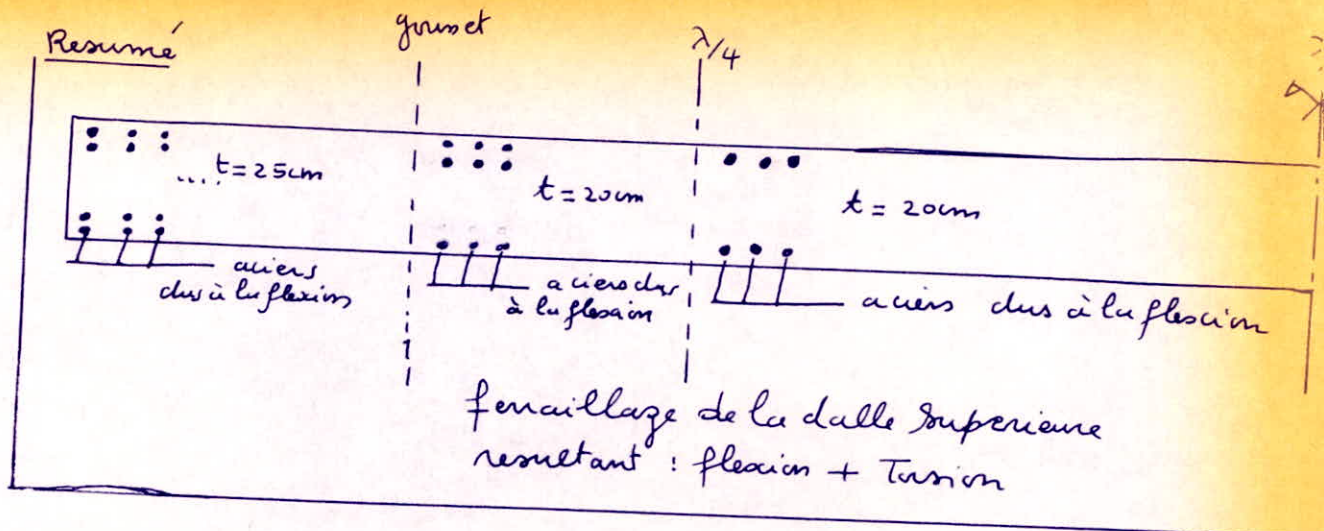 Resumé
gousset
λ/4
.... t = 25cm
t = 20cm
t = 20cm
aciers
dus à la flexion
aciers dus
à la flexion
aciers dus à la flexion
ferraillage de la dalle Superieure
resultant : flexion + Torsion